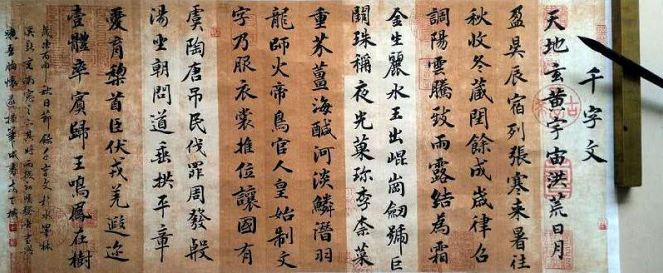 千字文
天地玄黄宇宙洪荒日月
盈昃辰宿列張寒来暑往
秋收冬藏閏餘成歲律召
調陽雲騰致雨露結為霜
金生麗水玉出崐崗劒號巨
闕珠稱夜光菓珎李柰菜
重芥薑海鹹河淡鱗潛羽
龍師火帝鳥官人皇始制文
字乃服衣裳推位讓國有
虞陶唐吊民伐罪周發殷
湯坐朝問道垂拱平章
愛育黎首臣伏戎羌遐迩
壹體率賓歸王鳴鳳在樹